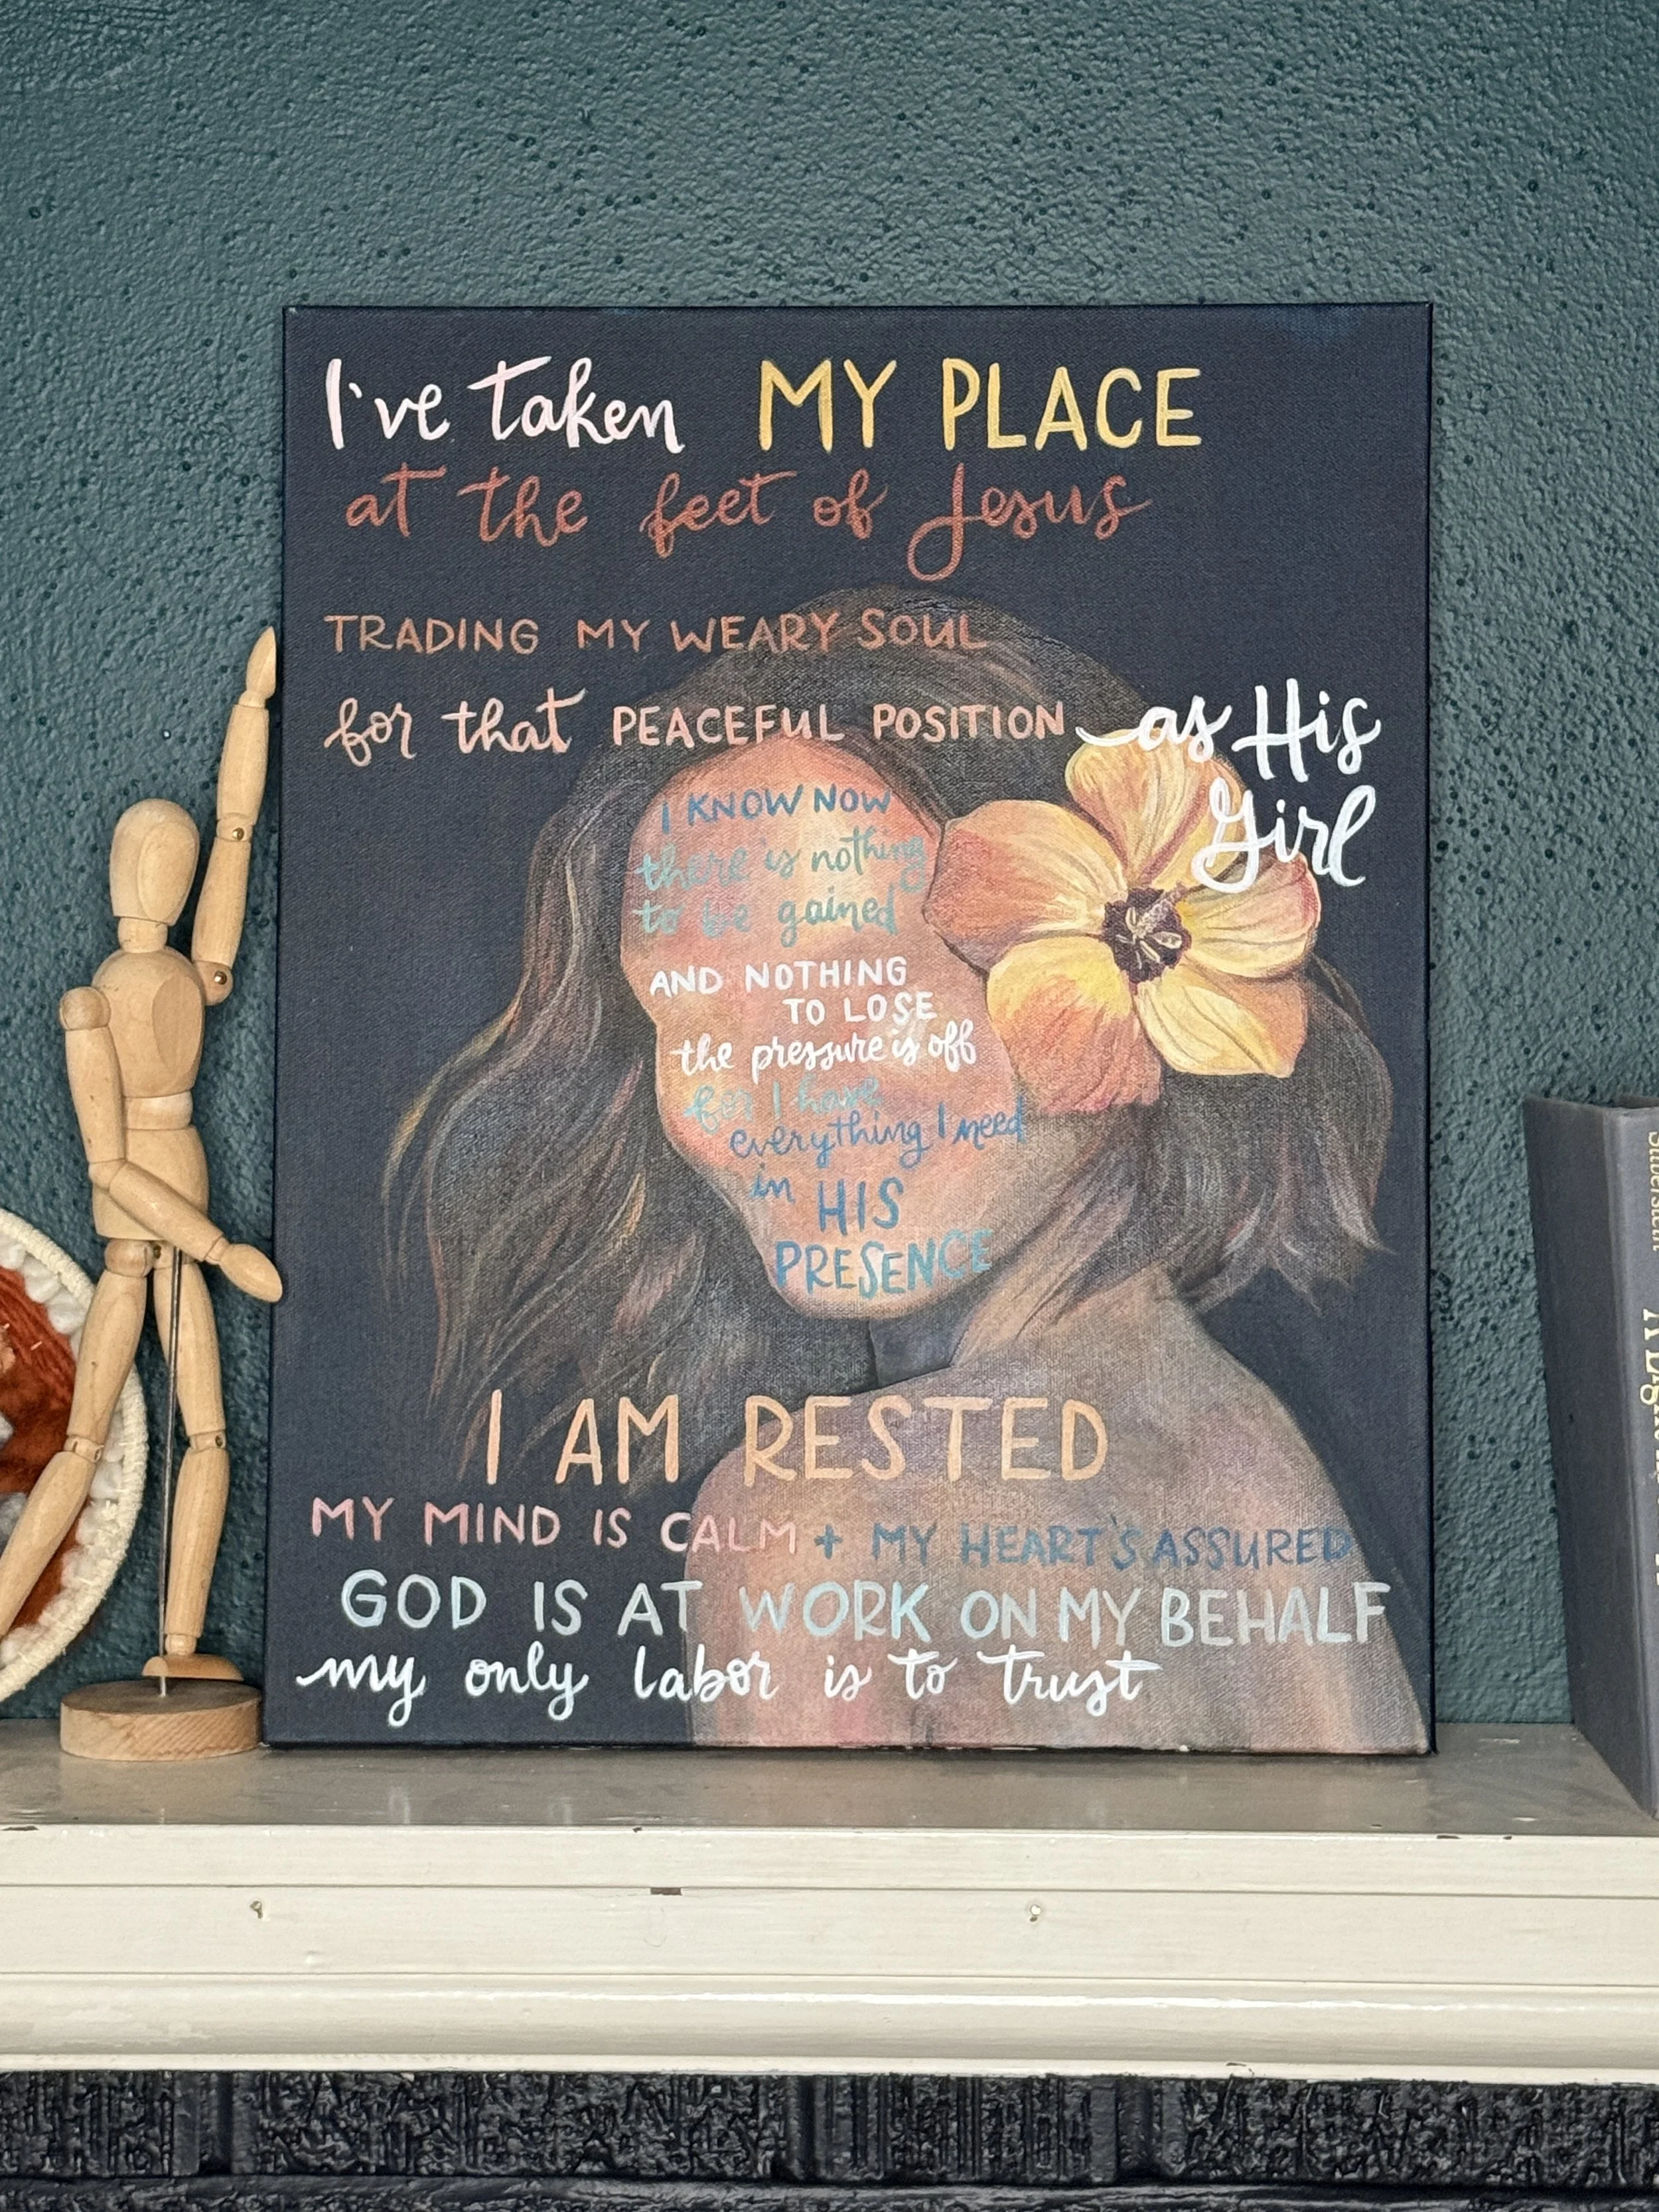 I've taken MY PLACE
at the feet of Jesus
TRADING MY WEARY SOUL
for that PEACEFUL POSITION as His
Girl
I KNOW NOW
there is nothing
to be gained
AND NOTHING
TO LOSE
the pressure is off
for I have
everything I need
in HIS
PRESENCE
I AM RESTED
MY MIND IS CALM + MY HEART'S ASSURED
GOD IS AT WORK ON MY BEHALF
my only labor is to trust
Silverstein